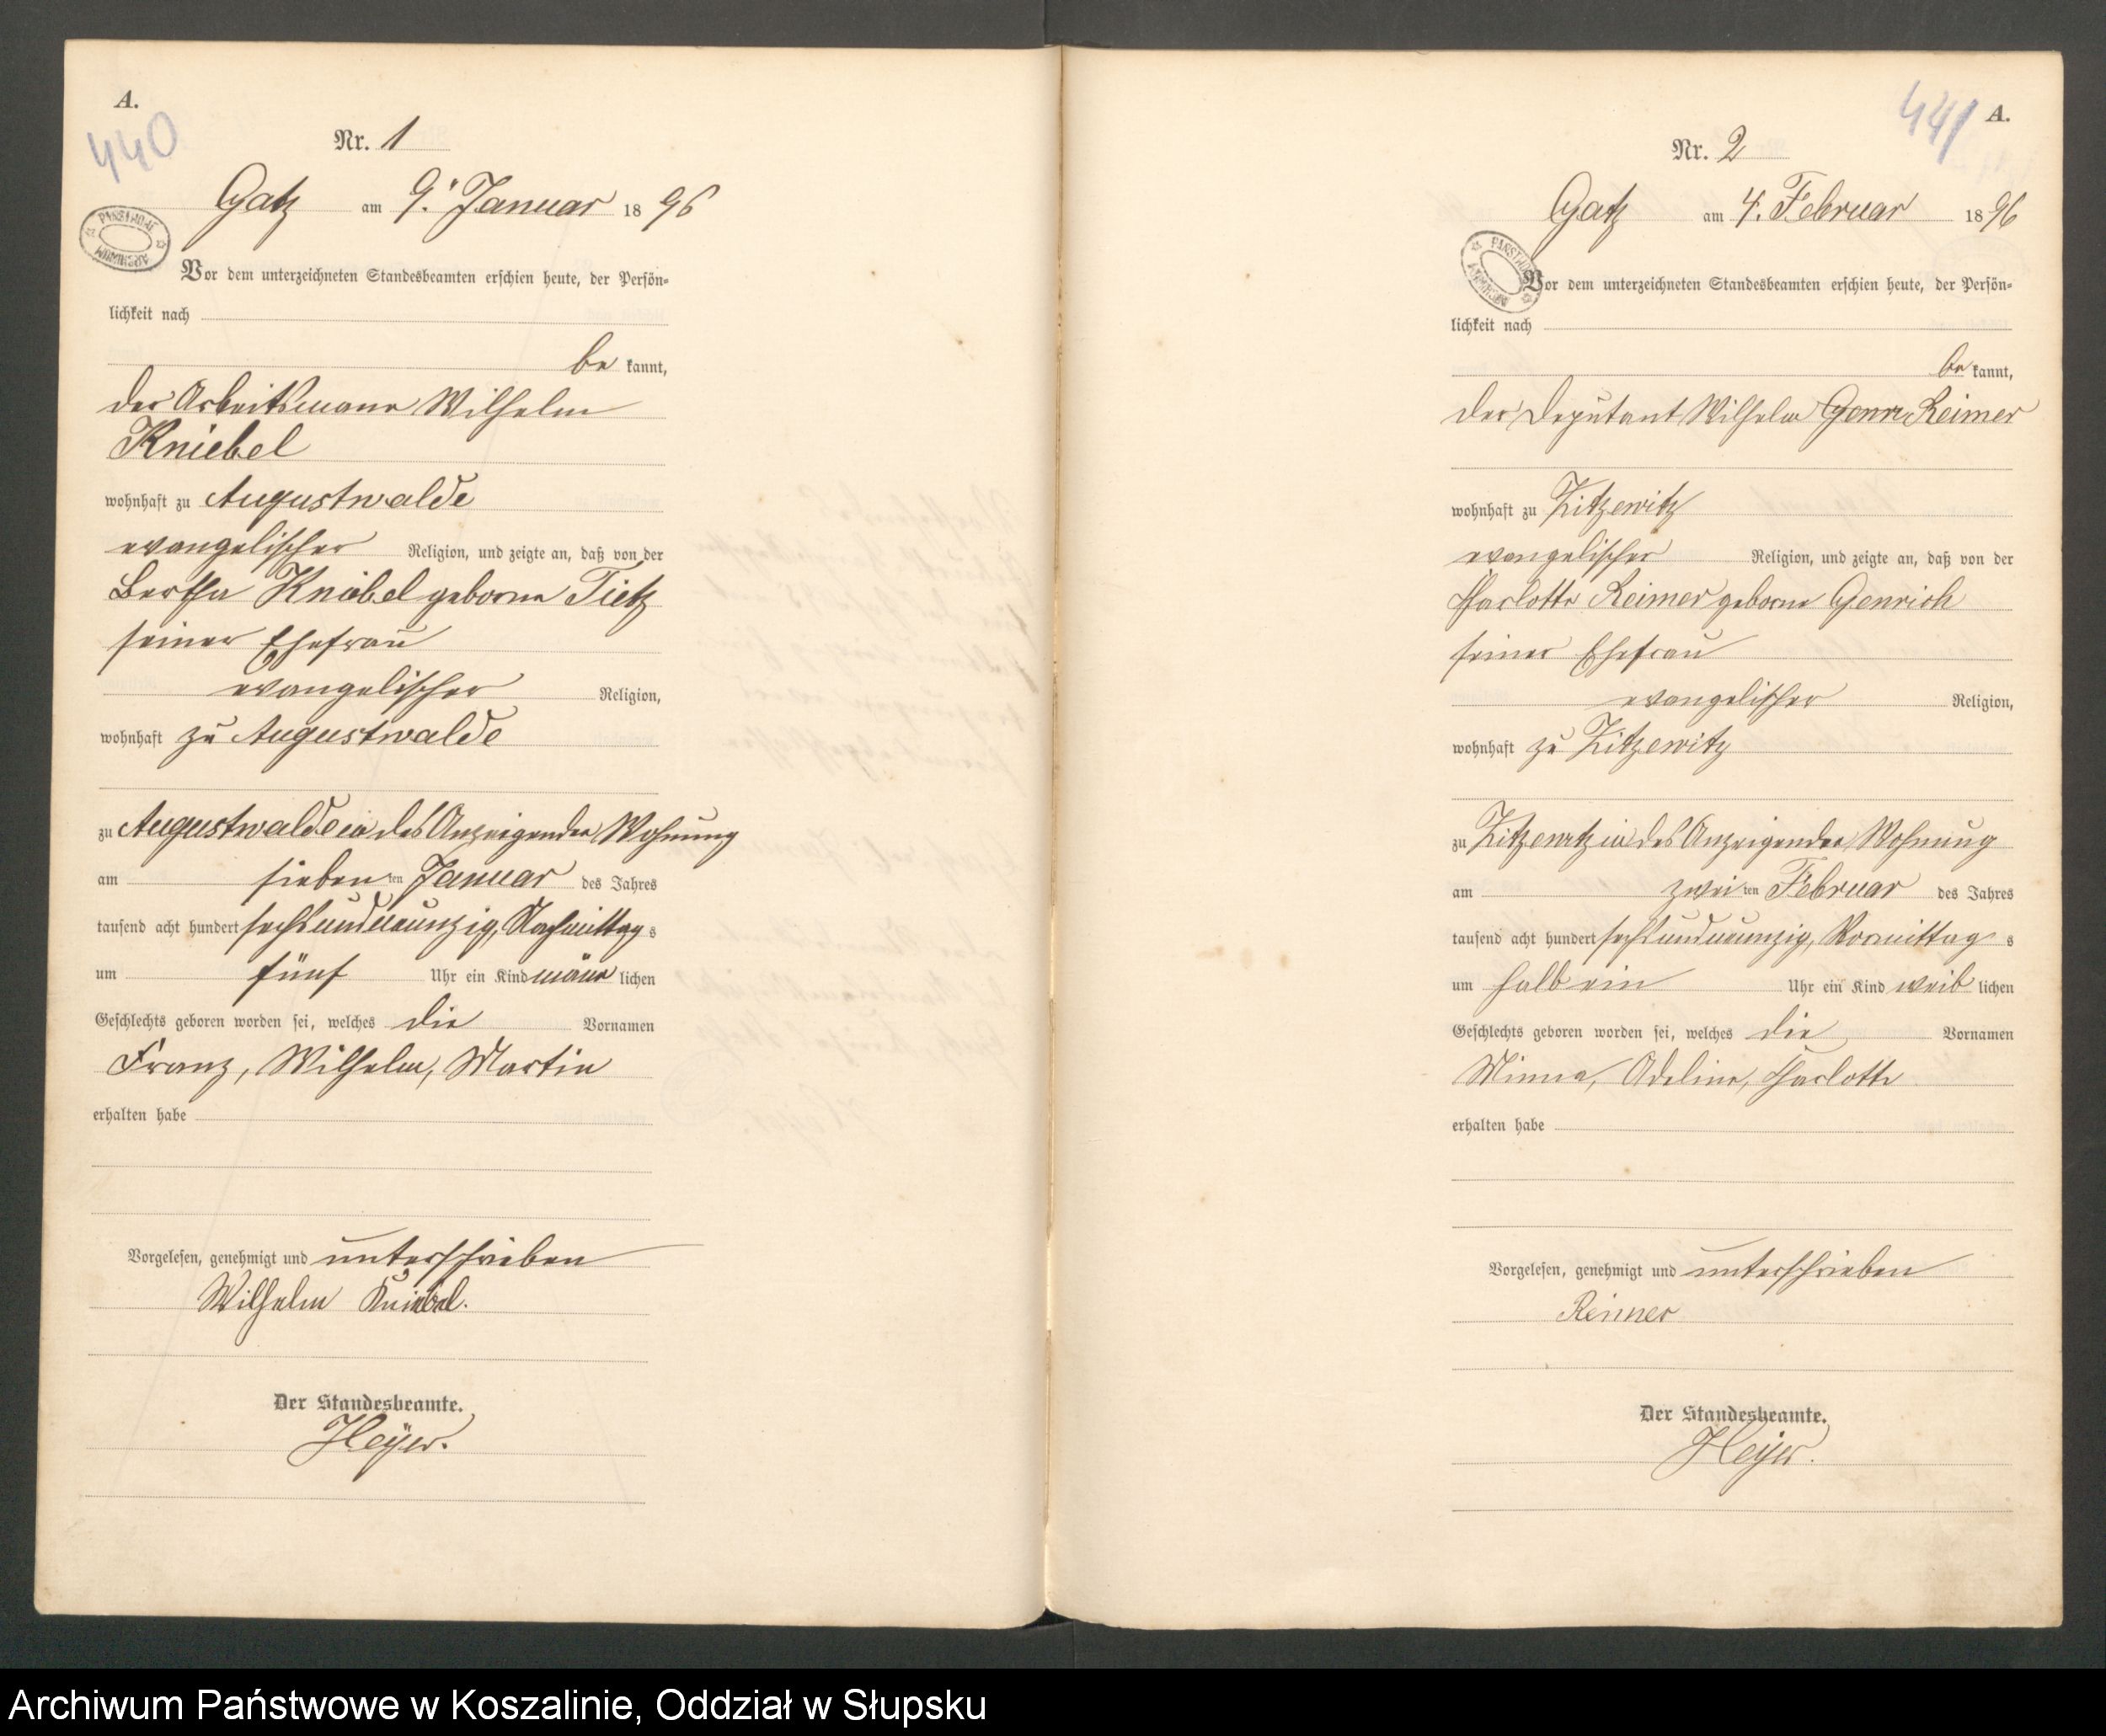 A.
440
Nr. 1
Gatz am 9. Januar 1896
PAŃSTWOWE ARCHIWUM
Vor dem unterzeichneten Standesbeamten erschien heute, der Persön-
lichkeit nach
be kannt,
der Arbeitsmann Wilhelm
Kniebel
wohnhaft zu Augustwalde
evangelischer Religion, und zeigte an, daß von der
Bertha Kniebel geborne Tietz
seiner Ehefrau
evangelischer Religion,
wohnhaft zu Augustwalde
zu Augustwalde in des Anzeigenden Wohnung
am sieben ten Januar des Jahres
tausend acht hundert sechsundneunzig, Nachmittag s
um fünf Uhr ein Kind männ lichen
Geschlechts geboren worden sei, welches die Vornamen
Franz, Wilhelm, Martin
erhalten habe
Vorgelesen, genehmigt und unterschrieben
Wilhelm Kniebel.
Der Standesbeamte.
Heyer.
441 A.
Nr. 2
Gatz am 4. Februar 1896
Vor dem unterzeichneten Standesbeamten erschien heute, der Persön-
lichkeit nach
be kannt,
der Deputant Wilhelm Reimer
wohnhaft zu Zitzewitz
evangelischer Religion, und zeigte an, daß von der
Charlotte Reimer geborne Genrich
seiner Ehefrau
evangelischer Religion,
wohnhaft zu Zitzewitz
zu Zitzewitz in des Anzeigenden Wohnung
am zwei ten Februar des Jahres
tausend acht hundert sechsundneunzig, Vormittag s
um halb ein Uhr ein Kind weib lichen
Geschlechts geboren worden sei, welches die Vornamen
Minna, Adeline, Charlotte
erhalten habe
Vorgelesen, genehmigt und unterschrieben
Reimer
Der Standesbeamte.
Heyer.
Archiwum Państwowe w Koszalinie, Oddział w Słupsku